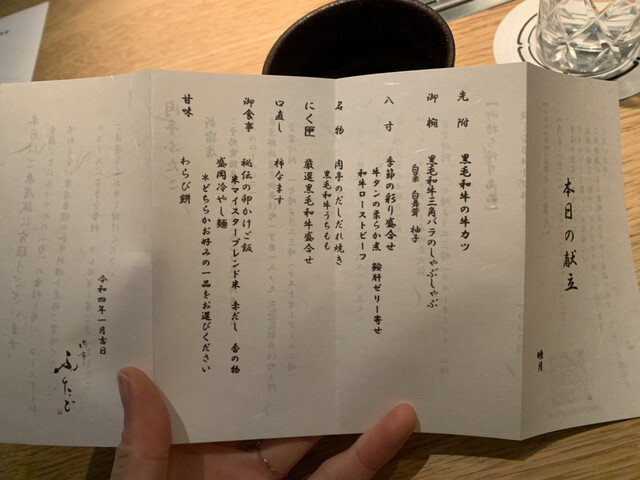 本日の献立
睦月
先附 黒毛和牛の牛カツ
御椀 黒毛和牛三角バラのしゃぶしゃぶ
白菜 白舞茸 柚子
八寸 季節の彩り盛合せ
牛タンの柔らか煮 鮟肝ゼリー寄せ
和牛ローストビーフ
名物 肉亭のだしだれ焼き
黒毛和牛うちもも
にく匣 厳選黒毛和牛盛合せ
口直し 柿なます
御食事 秘伝の卵かけご飯
米マイスターブレンド米 赤だし 香の物
盛岡冷やし麺
※どちらかお好みの一品をお選びください
甘味 わらび餅
令和四年一月吉日
肉亭
ふたご